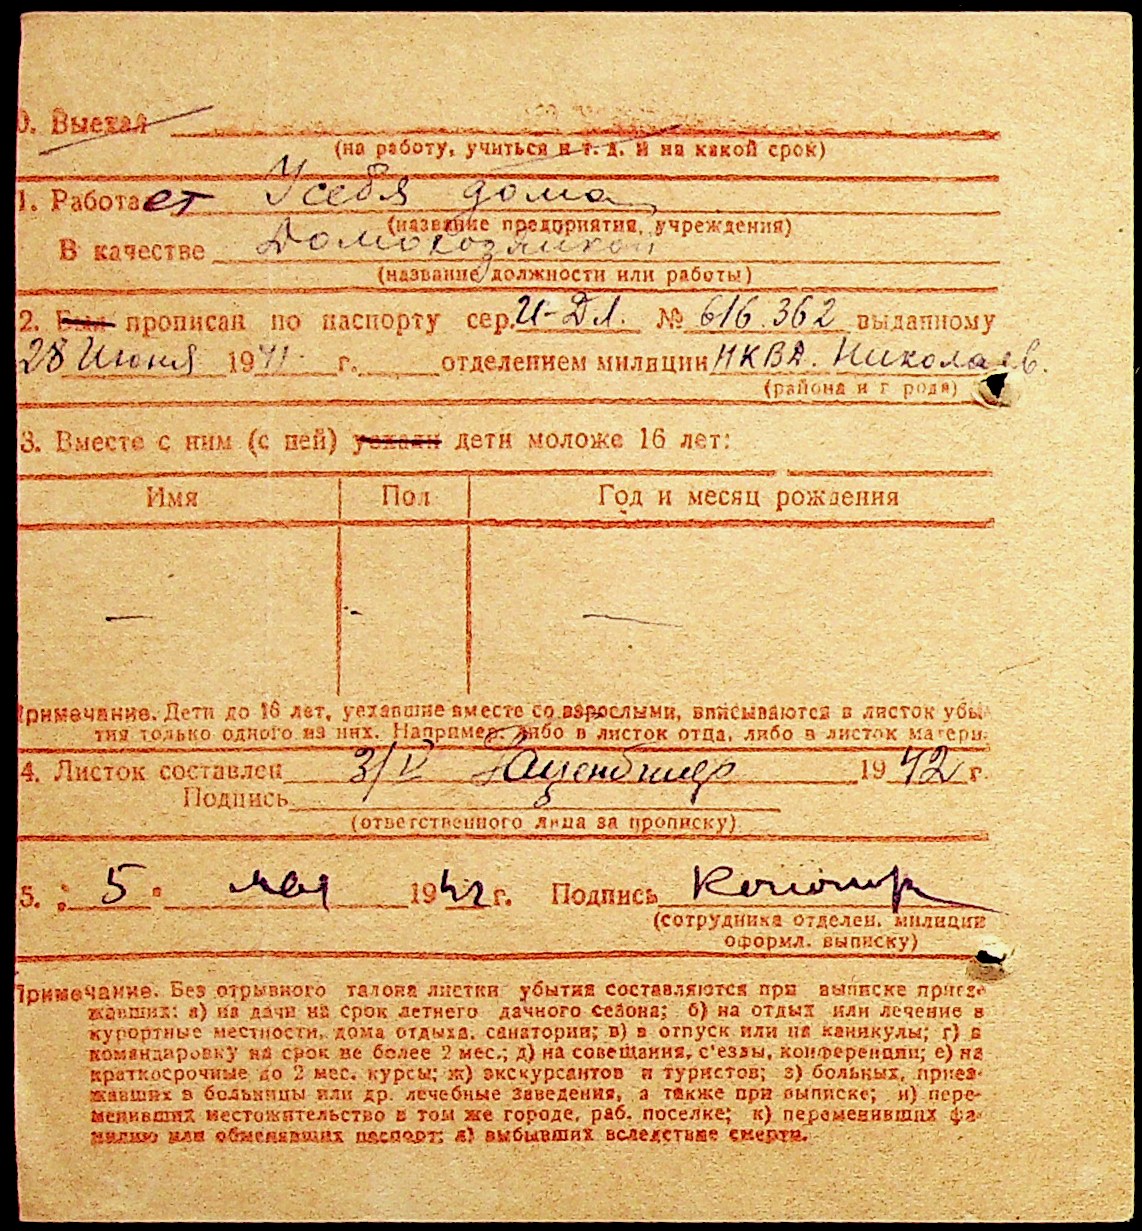 0. Выехал
(на работу, учиться и т. д. и на какой срок)
1. Работает У себя дома
(название предприятия, учреждения)
В качестве Домохозяйкой
(название должности или работы)
2. Был прописан по паспорту сер. И-ДЛ. № 616.362 выданному
28 Июня 1941 г. отделением милиции НКВД. Николаев.
(района и г рода)
3. Вместе с ним (с ней) уехали дети моложе 16 лет:
Имя Пол Год и месяц рождения
— - —
Примечание. Дети до 16 лет, уехавшие вместе со взрослыми, вписываются в листок убы-
тия только одного из них. Например: либо в листок отца, либо в листок матери.
4. Листок составлен 3/V 1942 г.
Подпись
(ответственного лица за прописку)
5. " 5 " мая 1942 г. Подпись
(сотрудника отделен. милиции
оформл. выписку)
Примечание. Без отрывного талона листки убытия составляются при выписке приез-
жавших: а) на дачи на срок летнего дачного сезона; б) на отдых или лечение в
курортные местности, дома отдыха, санатории; в) в отпуск или на каникулы; г) в
командировку на срок не более 2 мес.; д) на совещания, с'езды, конференции; е) на
краткосрочные до 2 мес. курсы; ж) экскурсантов и туристов; з) больных, приез-
жавших в больницы или др. лечебные заведения, а также при выписке; и) пере-
менивших местожительство в том же городе, раб. поселке; к) переменивших фа-
милию или обменявших паспорт; л) выбывших вследствие смерти.